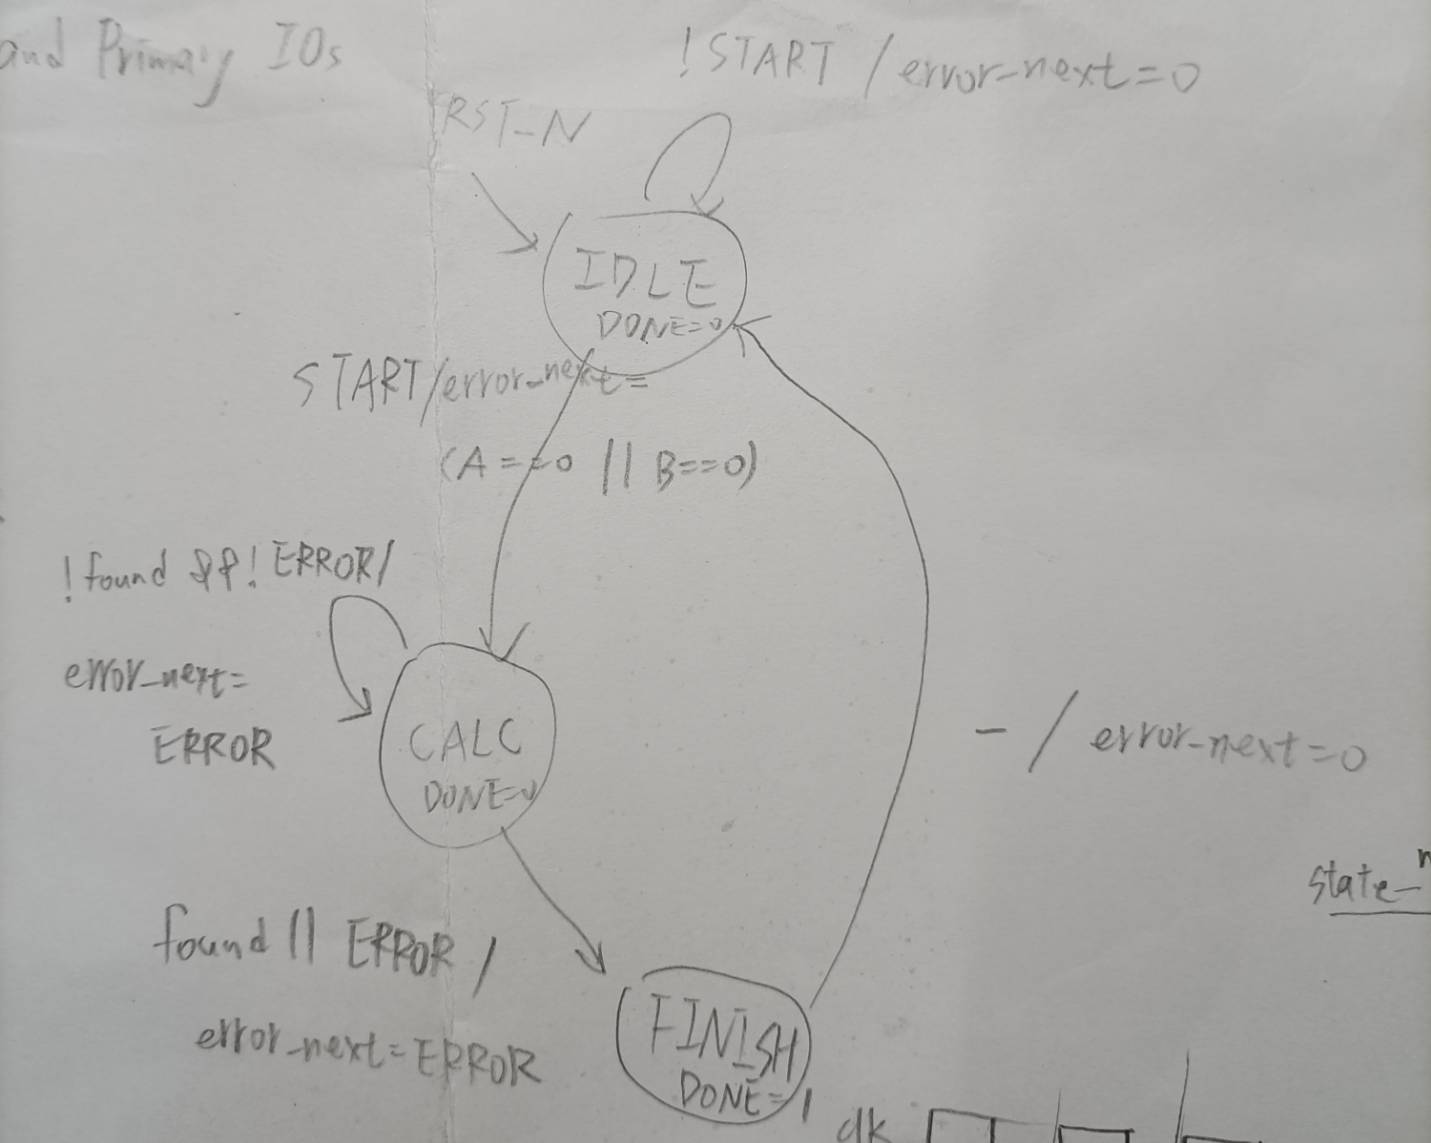 and Primary IOs
!START / error_next=0
RST_N
IDLE
DONE=0
START/error_next=
(A==0 || B==0)
!found &&! ERROR/
error_next=
ERROR
CALC
DONE=0
- / error_next=0
state_
found || ERROR /
error_next=ERROR
FINISH
DONE=1
clk